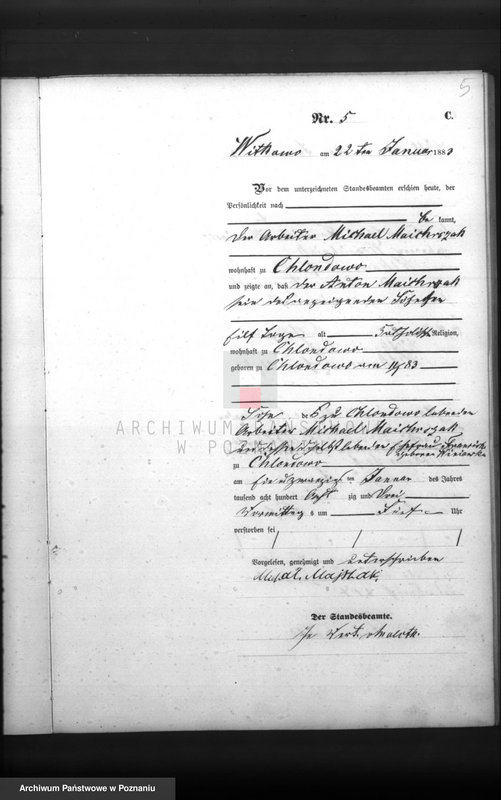 5
Nr. 5
C.
Witkowo am 22ten Januar 1883
Vor dem unterzeichneten Standesbeamten erschien heute, der
Persönlichkeit nach
be kannt,
der Arbeiter Michael
wohnhaft zu Chlondowo
und zeigte an, daß der Anton
sein des anzeigenden
Elf Tage alt katholischer Religion,
wohnhaft zu Chlondowo
geboren zu Chlondowo am
Sohn des zu Chlondowo lebenden
Arbeiter Michael
ARCHIWUM PAŃSTWOWE
W POZNANIU
und dessen daselbst lebenden Ehefrau
geborene
zu Chlondowo
am Ein u zwanzigsten Januar des Jahres
tausend acht hundert acht zig und Drei
Vormittags um Fünf Uhr
verstorben sei
Vorgelesen, genehmigt und unterschrieben
Der Standesbeamte.
In Vert.
Archiwum Państwowe w Poznaniu